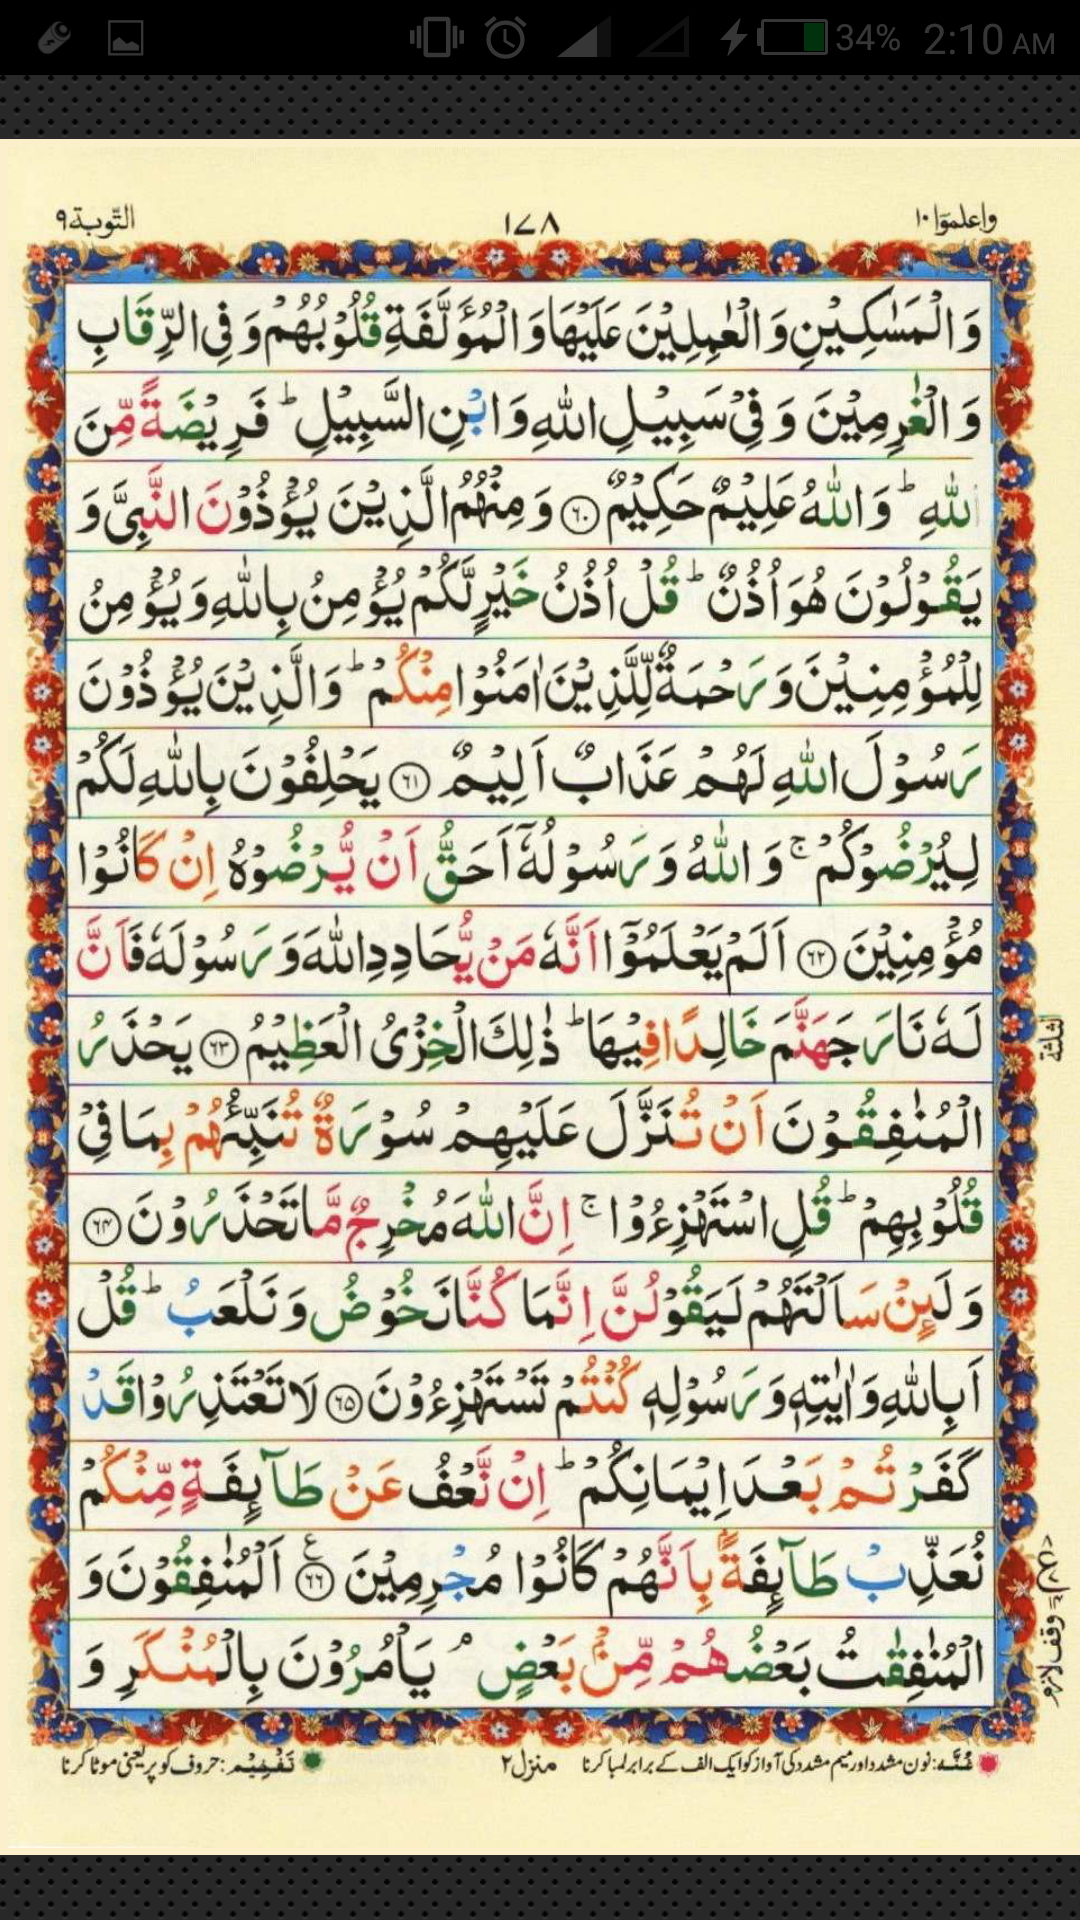 34% 2:10 AM
واعلموٓا ١٠
١٧٨
التّوبة ٩
وَالْمَسٰكِيْنِ وَالْعٰمِلِيْنَ عَلَيْهَا وَالْمُؤَلَّفَةِ قُلُوْبُهُمْ وَفِي الرِّقَابِ
وَالْغٰرِمِيْنَ وَفِيْ سَبِيْلِ اللّٰهِ وَابْنِ السَّبِيْلِ ؕ فَرِيْضَةً مِّنَ
اللّٰهِ ؕ وَاللّٰهُ عَلِيْمٌ حَكِيْمٌ ﴿۶۰﴾ وَمِنْهُمُ الَّذِيْنَ يُؤْذُوْنَ النَّبِيَّ وَ
يَقُوْلُوْنَ هُوَ اُذُنٌ ؕ قُلْ اُذُنُ خَيْرٍ لَّكُمْ يُؤْمِنُ بِاللّٰهِ وَيُؤْمِنُ
لِلْمُؤْمِنِيْنَ وَرَحْمَةٌ لِّلَّذِيْنَ اٰمَنُوْا مِنْكُمْ ؕ وَالَّذِيْنَ يُؤْذُوْنَ
رَسُوْلَ اللّٰهِ لَهُمْ عَذَابٌ اَلِيْمٌ ﴿۶۱﴾ يَحْلِفُوْنَ بِاللّٰهِ لَكُمْ
لِيُرْضُوْكُمْ ۚ وَاللّٰهُ وَرَسُوْلُهٗٓ اَحَقُّ اَنْ يُّرْضُوْهُ اِنْ كَانُوْا
مُؤْمِنِيْنَ ﴿۶۲﴾ اَلَمْ يَعْلَمُوْٓا اَنَّهٗ مَنْ يُّحَادِدِ اللّٰهَ وَرَسُوْلَهٗ فَاَنَّ
لَهٗ نَارَ جَهَنَّمَ خَالِدًا فِيْهَا ؕ ذٰلِكَ الْخِزْيُ الْعَظِيْمُ ﴿۶۳﴾ يَحْذَرُ
الثلثة
الْمُنٰفِقُوْنَ اَنْ تُنَزَّلَ عَلَيْهِمْ سُوْرَةٌ تُنَبِّئُهُمْ بِمَا فِيْ
قُلُوْبِهِمْ ؕ قُلِ اسْتَهْزِءُوْا ۚ اِنَّ اللّٰهَ مُخْرِجٌ مَّا تَحْذَرُوْنَ ﴿۶۴﴾
وَلَئِنْ سَاَلْتَهُمْ لَيَقُوْلُنَّ اِنَّمَا كُنَّا نَخُوْضُ وَنَلْعَبُ ؕ قُلْ
اَبِاللّٰهِ وَاٰيٰتِهٖ وَرَسُوْلِهٖ كُنْتُمْ تَسْتَهْزِءُوْنَ ﴿۶۵﴾ لَا تَعْتَذِرُوْا قَدْ
كَفَرْتُمْ بَعْدَ اِيْمَانِكُمْ ؕ اِنْ نَّعْفُ عَنْ طَآئِفَةٍ مِّنْكُمْ
نُعَذِّبْ طَآئِفَةًۢ بِاَنَّهُمْ كَانُوْا مُجْرِمِيْنَ ﴿۶۶﴾ اَلْمُنٰفِقُوْنَ وَ
الْمُنٰفِقٰتُ بَعْضُهُمْ مِّنْۢ بَعْضٍ ۘ يَاْمُرُوْنَ بِالْمُنْكَرِ وَ
وقف لازم
غُنّہ: نون مشدد اور میم مشدد کی آواز کو ایک الف کے برابر لمبا کرنا
منزل ۲
تَفْخِيْم: حروف کو پر یعنی موٹا کرنا